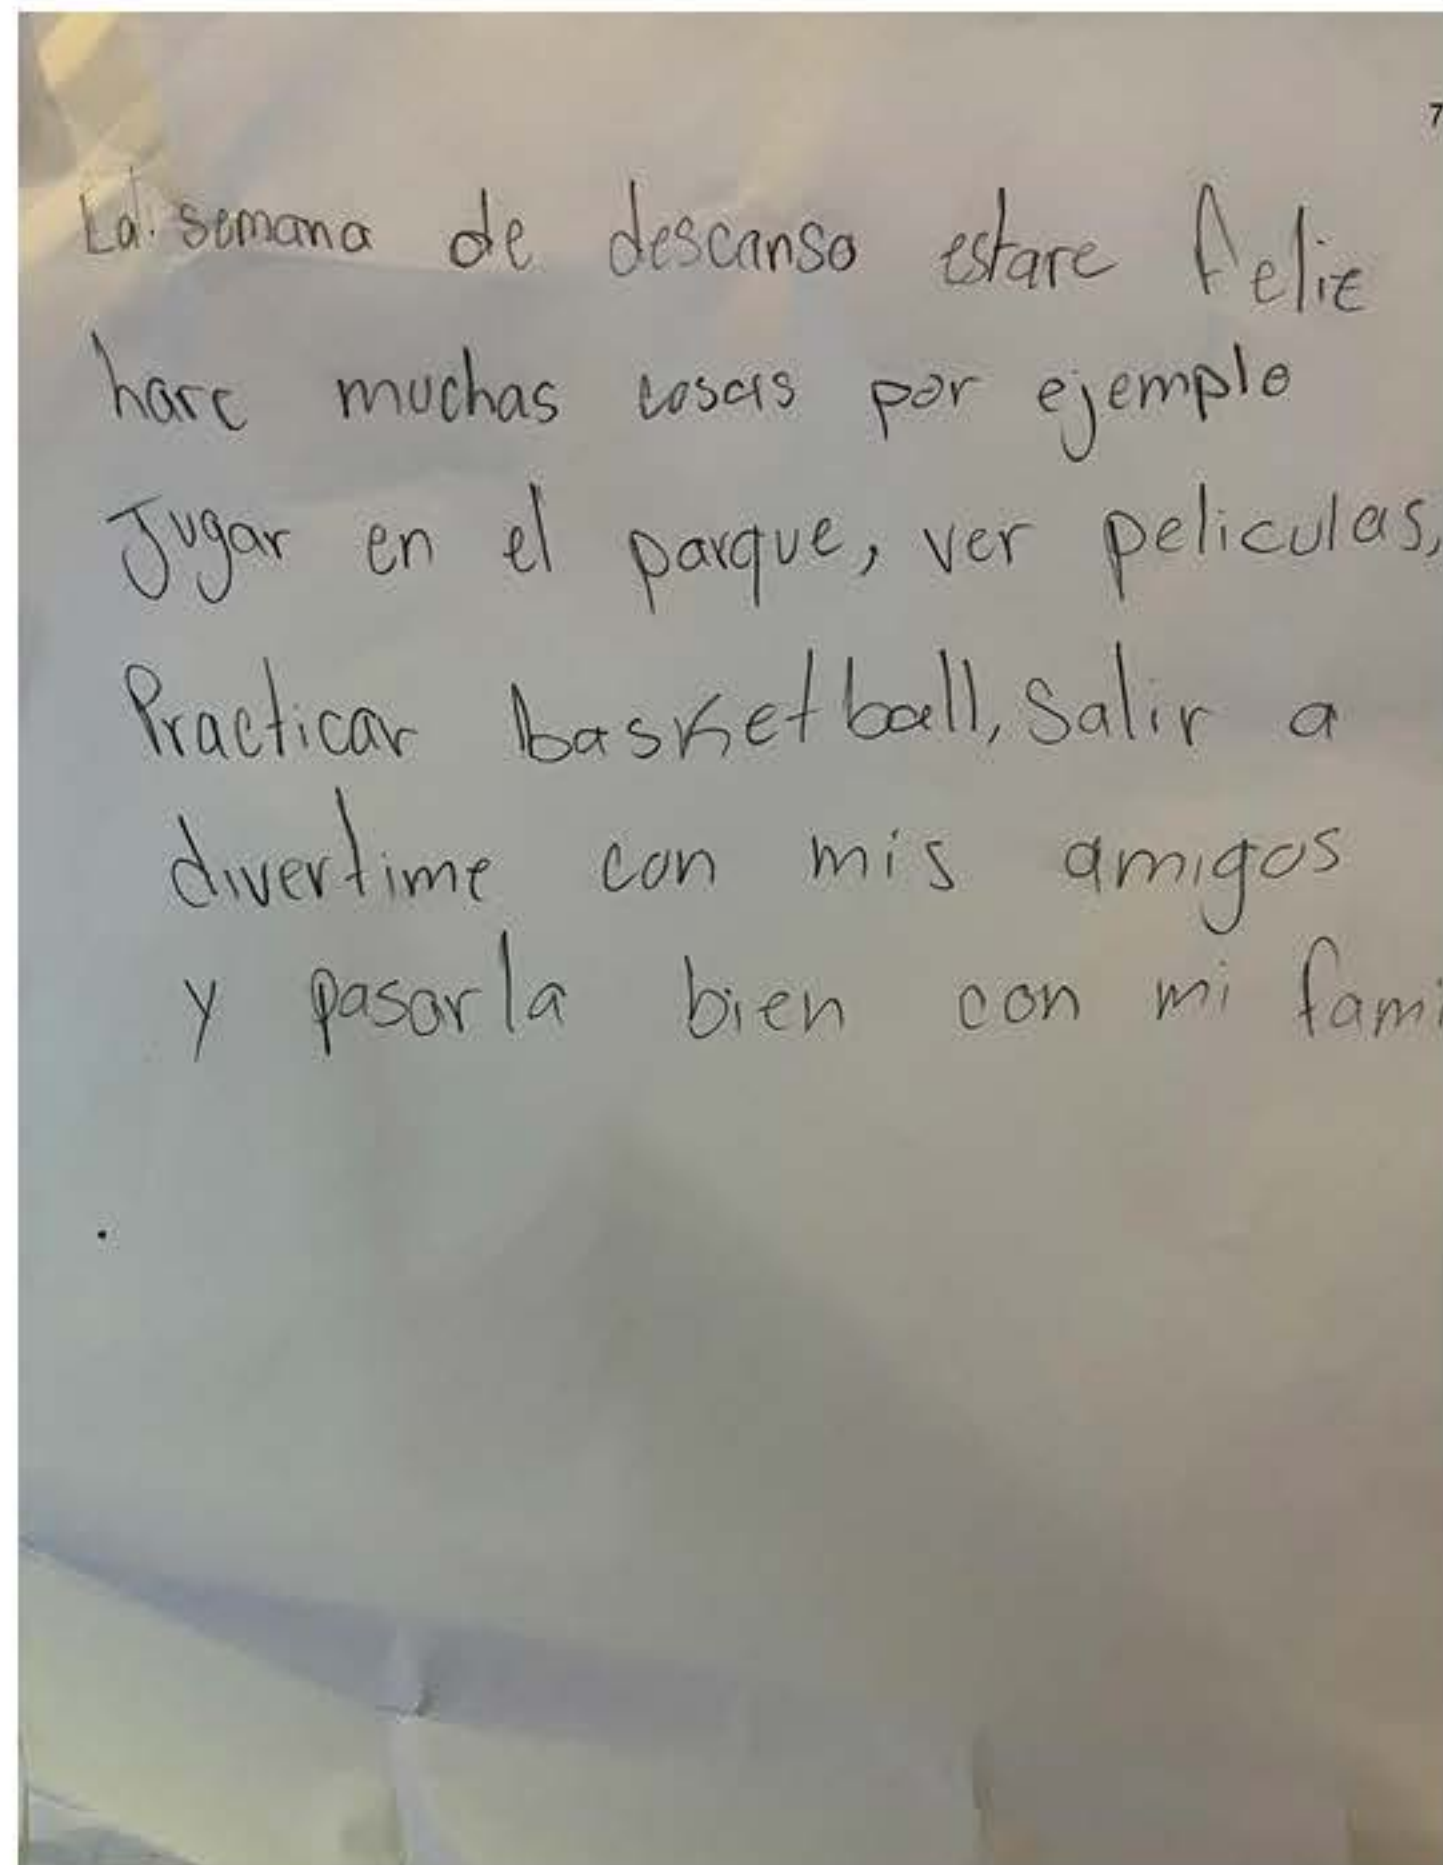 7
La semana de descanso estare feliz
hare muchas cosas por ejemplo
Jugar en el parque, ver peliculas,
Practicar basketball, salir a
divertime con mis amigos
y pasarla bien con mi fami